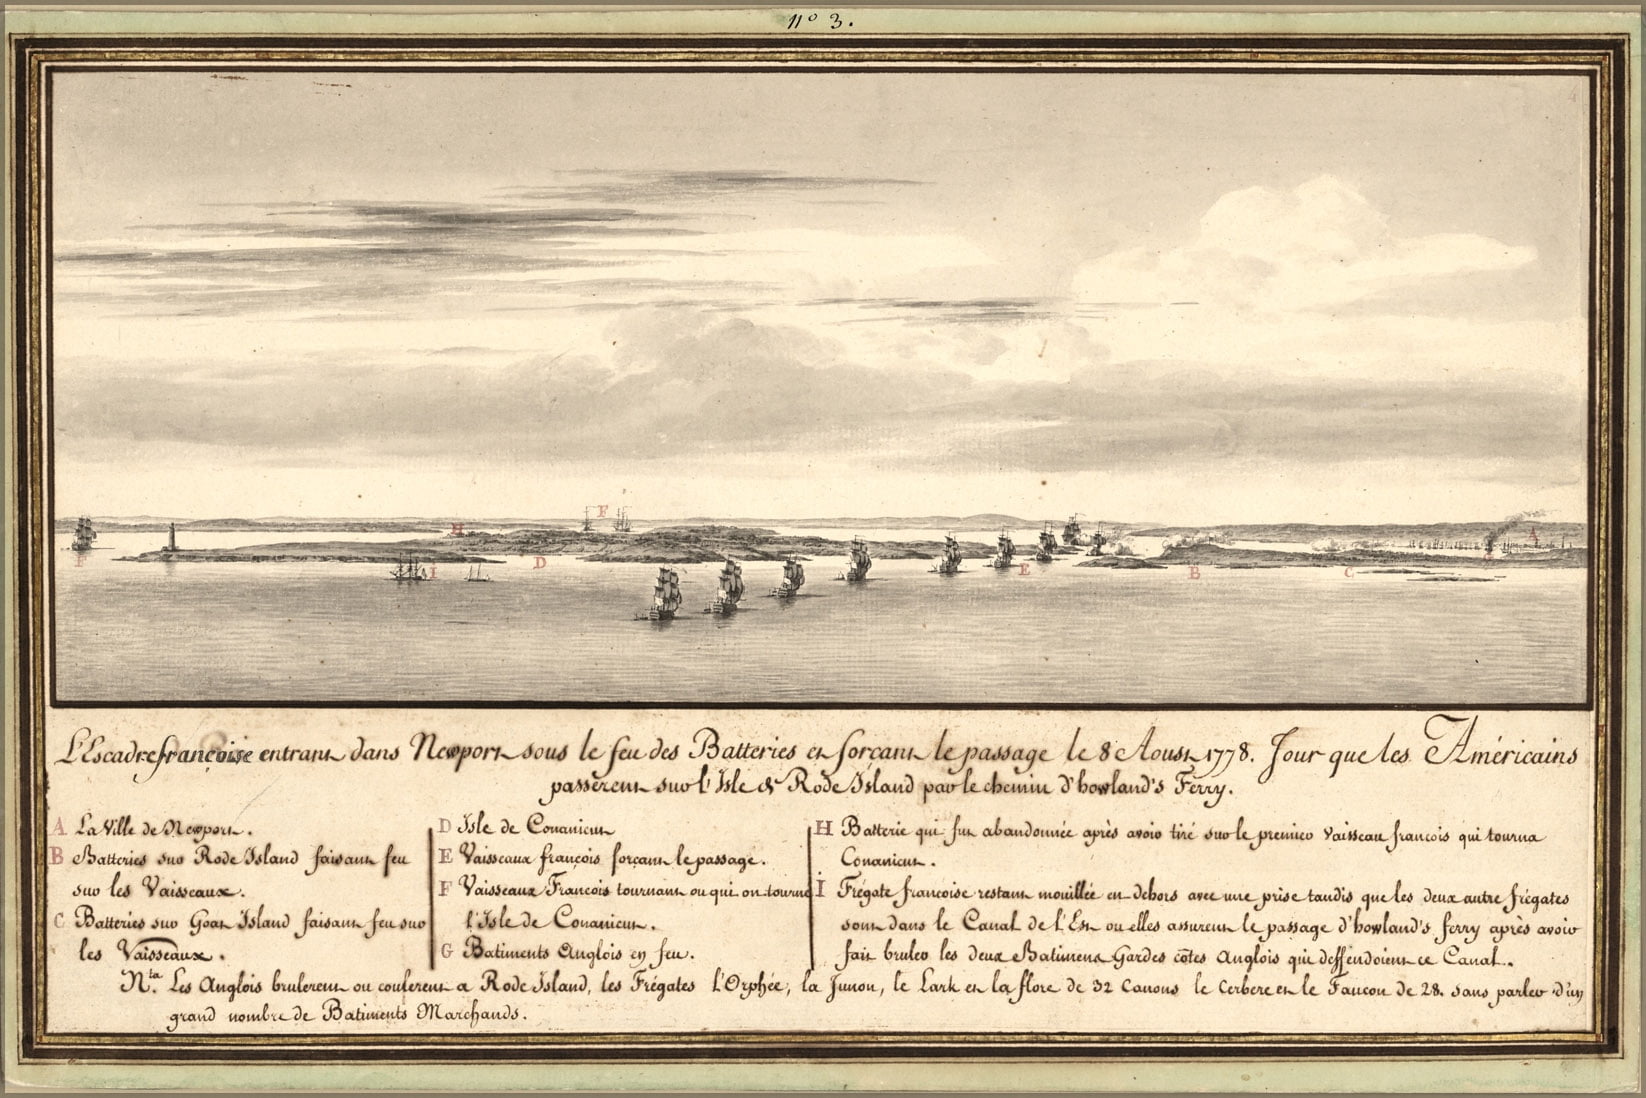 nº 3.
F
H
F
I
D
E
B
C
A
G
L'Escadre françoise entrant dans Newport sous le feu des Batteries et forçant le passage le 8 Aoust 1778. Jour que les Américains
passèrent sur l'Isle de Rode Island par le chemin d'howland's Ferry.
A La Ville de Newport.
B Batteries sur Rode Island faisant feu
sur les Vaisseaux.
C Batteries sur Goat Island faisant feu sur
les Vaisseaux.
D Isle de Conanicut
E Vaisseaux françois forçant le passage.
F Vaisseaux François tournant ou qui ont tourné
l'Isle de Conanicut.
G Batiments Anglois en feu.
H Batterie qui fut abandonnée après avoir tiré sur le premier Vaisseau françois qui tourna
Conanicut.
I Frégate françoise restant mouillée en dehors avec une prise tandis que les deux autre frégates
sont dans le Canal de l'Est ou elles assurent le passage d'howland's ferry après avoir
fait bruler les deux Batimens Gardes côtes Anglois qui deffendoient ce Canal.
Nta. Les Anglois brulerent ou coulerent a Rode Island, les Frégates l'Orphée, la Junon, le Lark et la flore de 32 Canons le Cerbere et le Faucon de 28. sans parler d'un
grand nombre de Batiments Marchands.